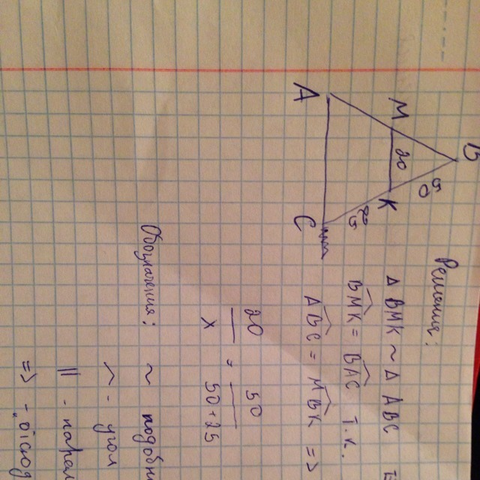 B
M
20
50
K
25
A
C
Решение:
Δ BMK ~ Δ ABC
BMK = BAC т.к.
ABC = MBK =>
20 = 50
x 50+25
Обозначения: ~ подобн
^ - угол
|| - парал
=>